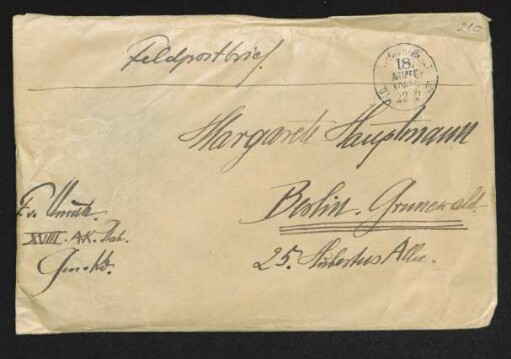 210
Feldpostbrief.
18.
ARMEE-
Margarete Hauptmann
Berlin. Grunewald.
25. Hubertus Allee.
F. v. Unruh.
XVIII. A.K. Stab.